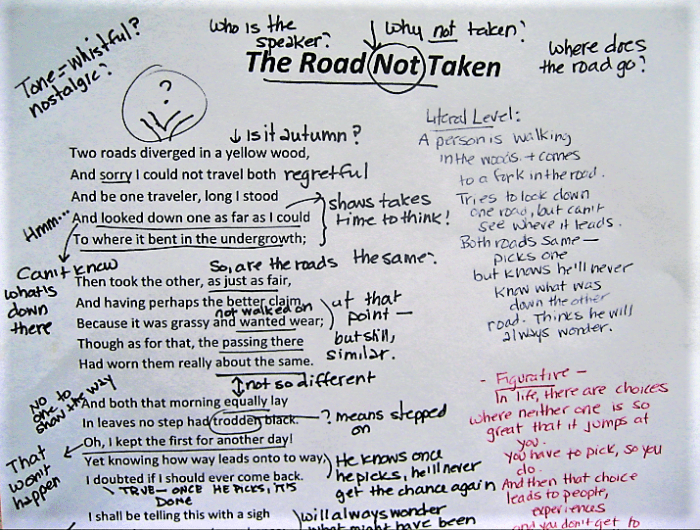 Tone = Whistful?
nostalgic?
Who is the
speaker?
Why not taken?
Where does
the road go?
The Road Not Taken
?
Is it autumn?
Two roads diverged in a yellow wood,
And sorry I could not travel both regretful
And be one traveler, long I stood
And looked down one as far as I could
To where it bent in the undergrowth;
shows takes
time to think!
Hmm...
Can't know
what's
down
there
So, are the roads the same?
Then took the other, as just as fair,
And having perhaps the better claim,
not walked on
Because it was grassy and wanted wear;
Though as for that, the passing there
Had worn them really about the same.
at that
point —
but still,
similar.
not so different
No
one to
show the way
And both that morning equally lay
In leaves no step had trodden black.
? means stepped
on
Oh, I kept the first for another day!
Yet knowing how way leads onto way,
I doubted if I should ever come back.
That
won't
happen
He knows once
he picks, he'll never
get the chance again
TRUE - ONCE HE PICKS, IT'S
DONE
I shall be telling this with a sigh
will always wonder
what might have been
Literal Level:
A person is walking
in the woods + comes
to a fork in the road.
Tries to look down
one road, but can't
see where it leads.
Both roads same —
picks one
but knows he'll never
know what was
down the other
road. Thinks he will
always wonder.
- Figurative -
In life, there are choices
where neither one is so
great that it jumps at
you.
You have to pick, so you
do.
And then that choice
leads to people,
experiences
and you don't get to